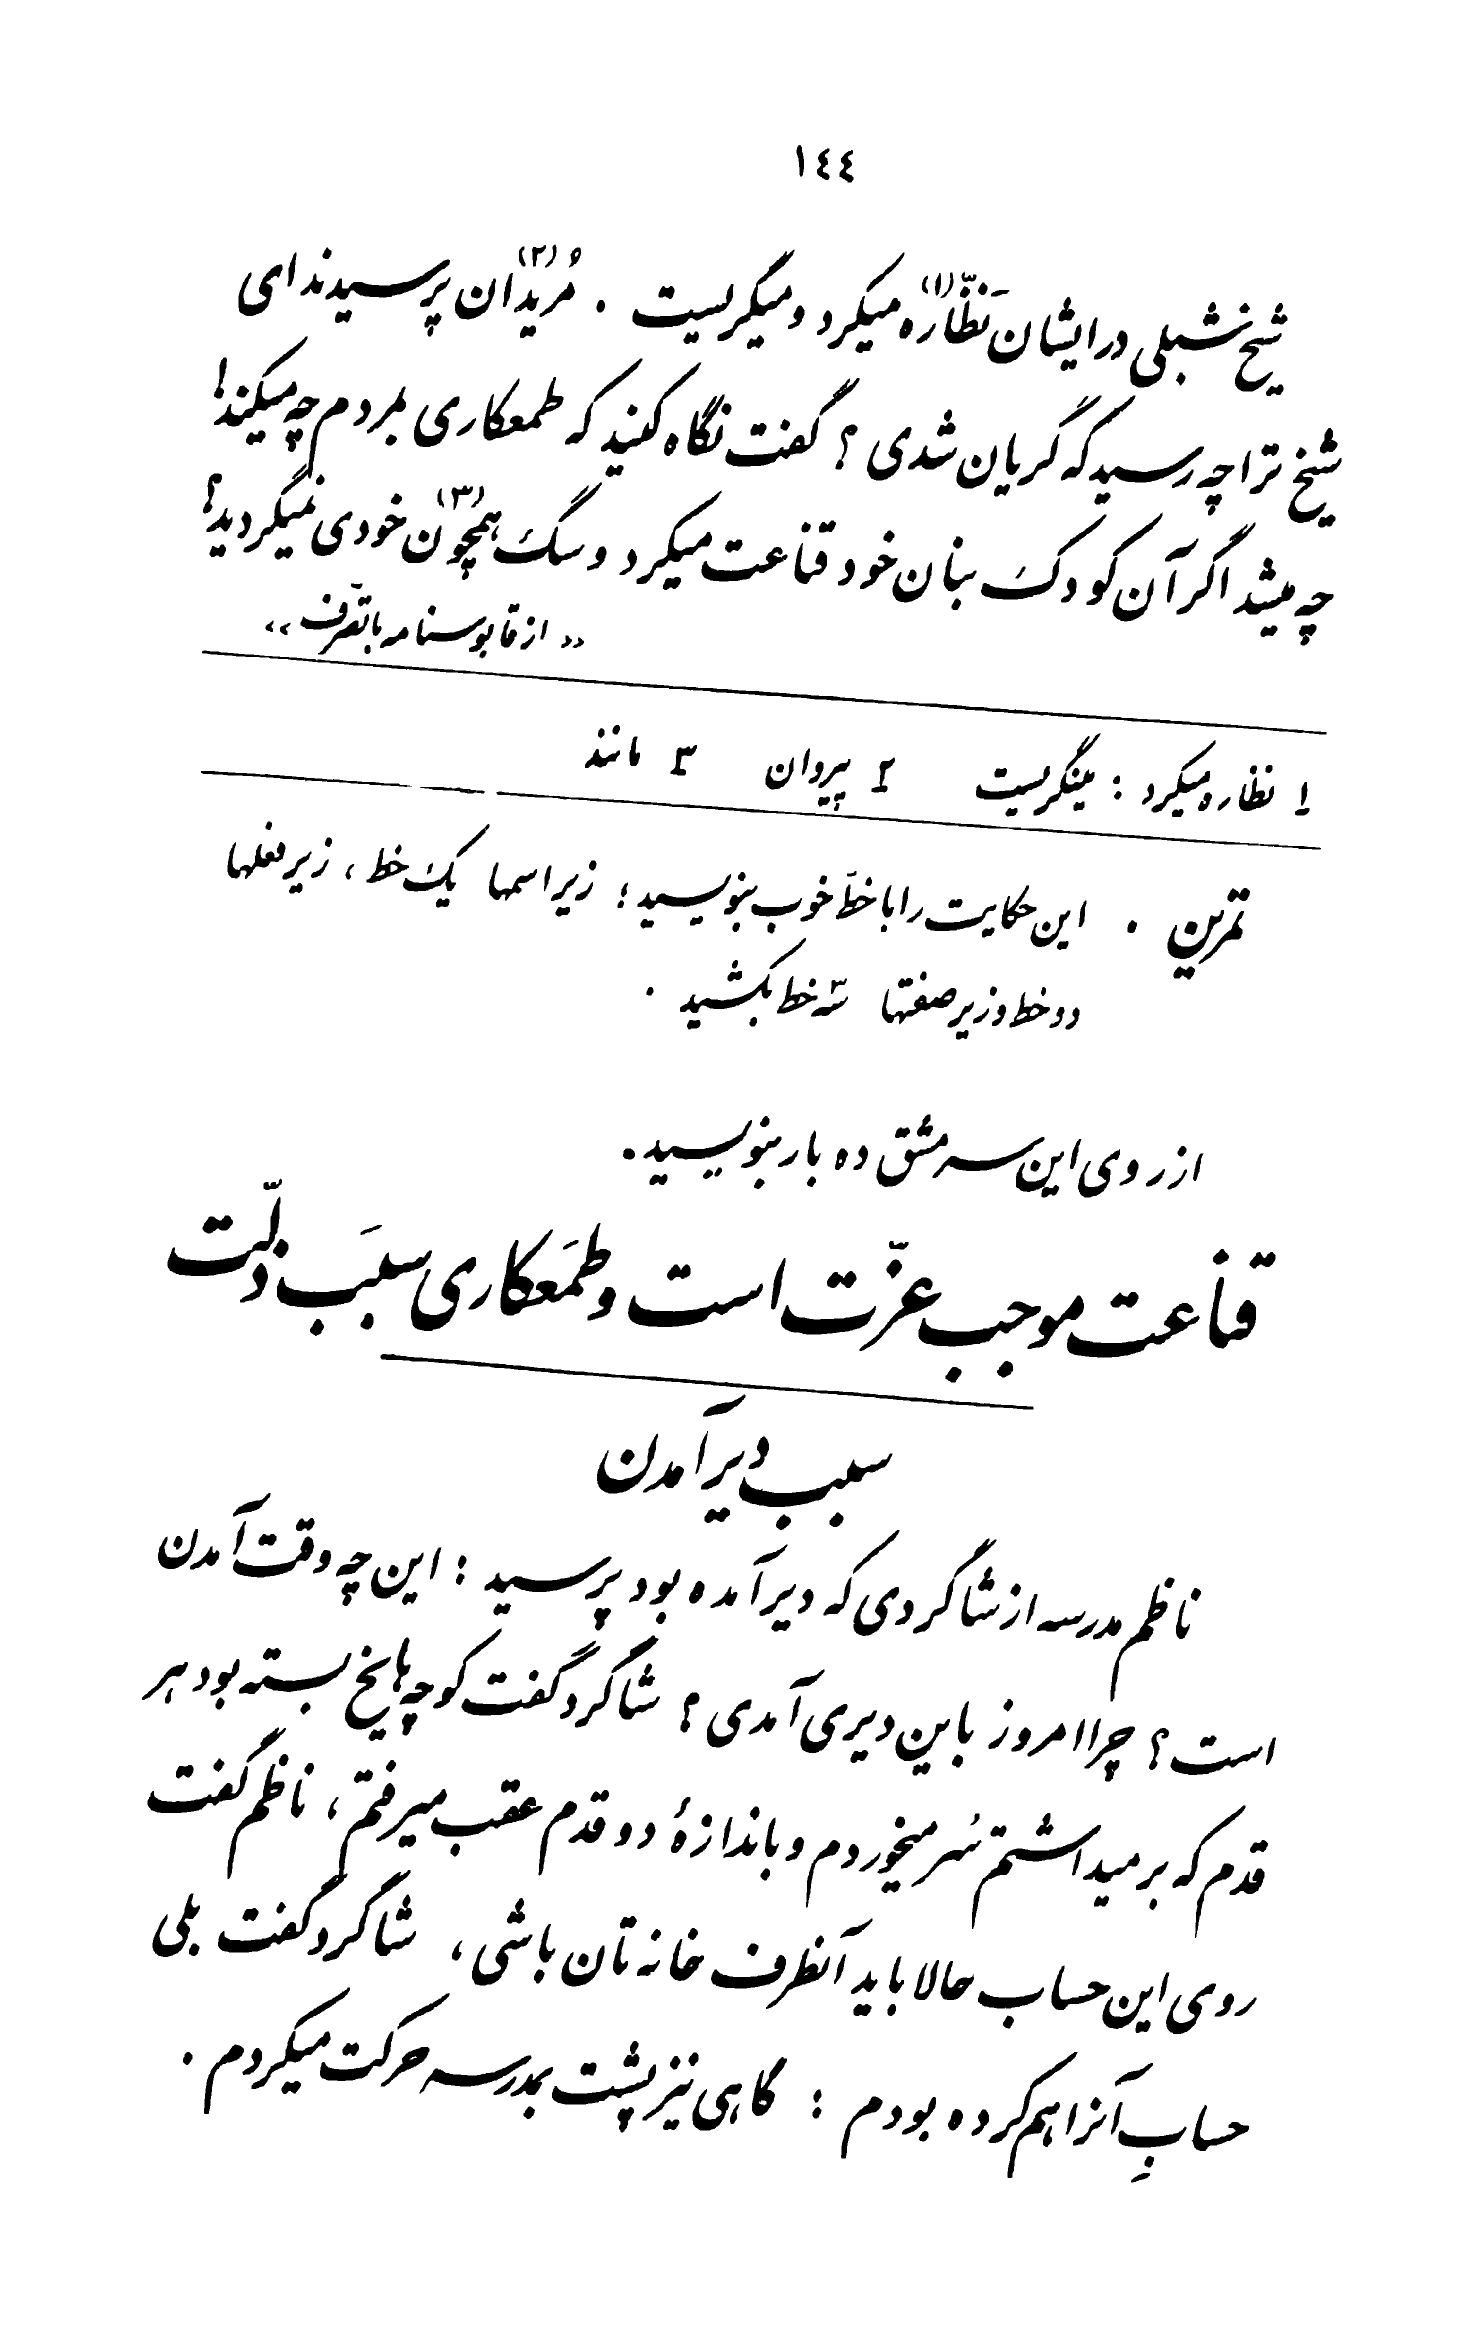 ١٤٤
شیخ شبلی در ایشان نَظّاره(۱) میکرد و میگریست . مُریدان(۲) پرسیدند ای
شیخ ترا چه رسید که گریان شدی ؟ گفت نگاه کنید که طمعکاری بمردم چه میکند !
چه میشد اگر آن کودک بنان خود قناعت میکرد و سگ همچون(۳) خودی نمیگردید ؟
« از قابوسنامه با تصّرف »
۱ نظاره میکرد : مینگریست ۲ پیروان ۳ مانند
تمرین . این حکایت را با خطّ خوب بنویسید ؛ زیر اسمها یک خط ، زیر فعلها
دو خط و زیر صفتها سه خط بکشید .
از روی این سرمشق ده بار بنویسید .
قناعت موجب عزّت است و طمَعکاری سبَب ذلّت
سبب دیر آمدن
ناظم مدرسه از شاگردی که دیر آمده بود پرسید : این چه وقت آمدن
است ؟ چرا امروز باین دیری آمدی ؟ شاگرد گفت کوچه ها یخ بسته بود هر
قدم که بر میداشتم سُر میخوردم و باندازهٔ دو قدم عقب میرفتم ، ناظم گفت
روی این حساب حالا باید آنطرف خانه تان باشی ، شاگرد گفت بلی
حسابِ آنرا هم کرده بودم : گاهی نیز پشت بمدرسه حرکت میکردم .